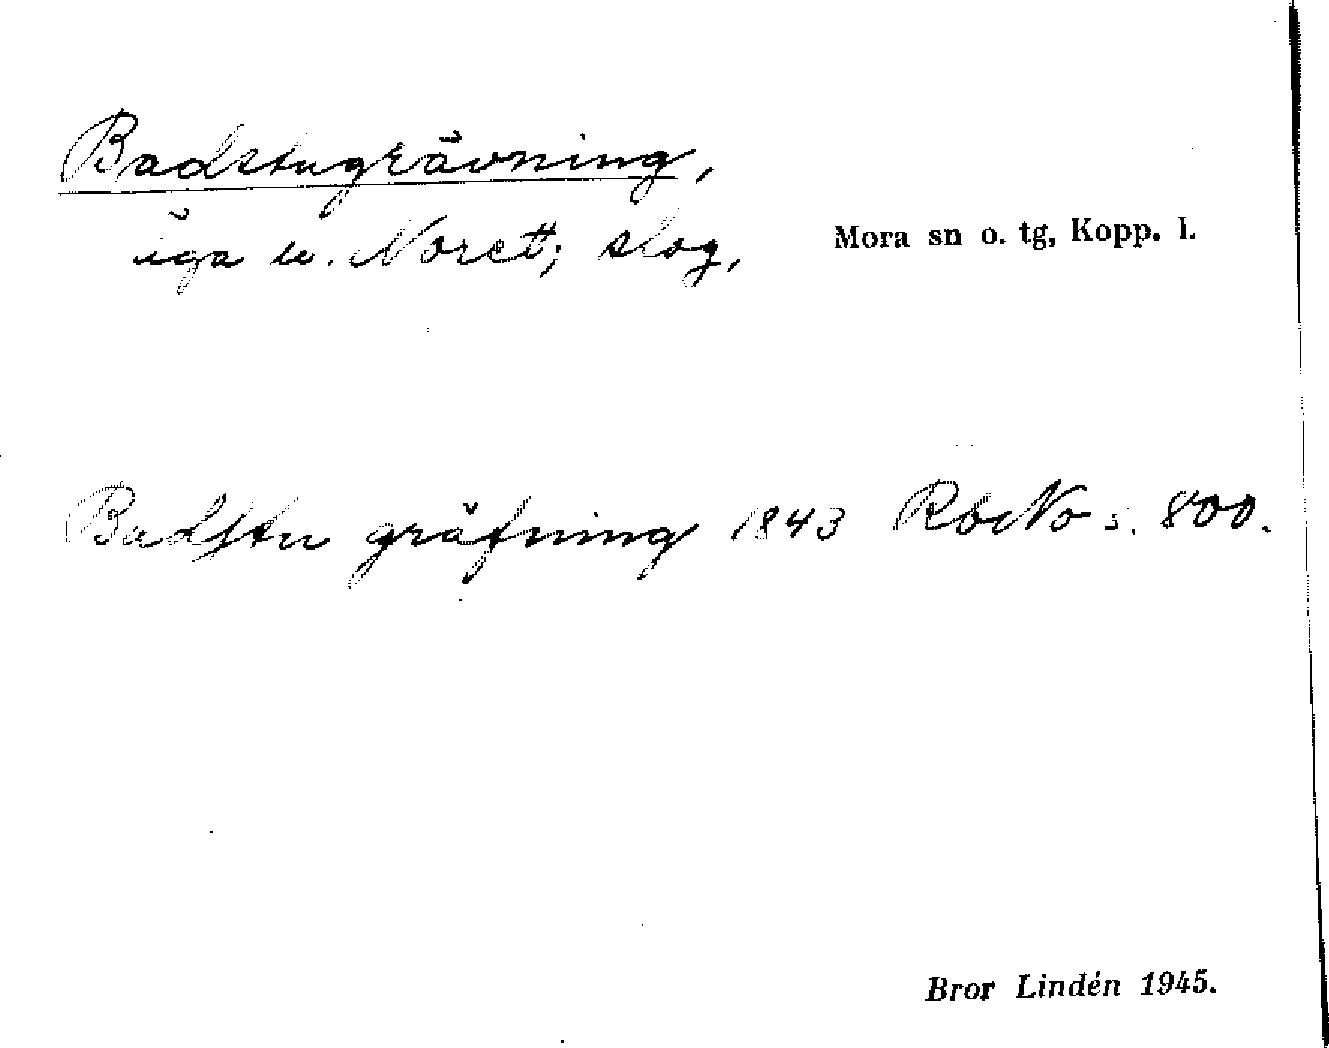 Badstugrävning,
äga u. Noret; slog, Mora sn o. tg, Kopp. l.
Badstu gräfning 1843 RbcNo s. 800.
Bror Lindén 1945.